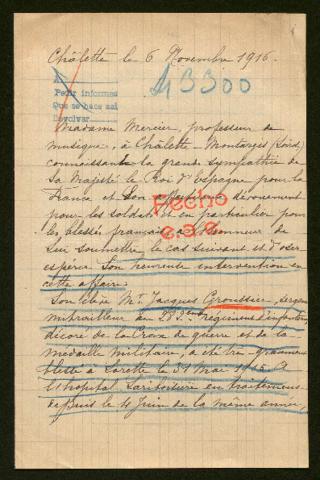 Châlette le 6 Novembre 1916.
43300
A
Pedir informes
Que se hace así
Devolver
Madame Mercier, professeur de
musique, à Châlette-Montargis (Loiret)
connaissant la grande sympathie de
Sa Majesté le Roi d'Espagne pour la
France et Son dévouement
pour les soldats et en particulier pour
les blessés français a l'honneur de
Lui soumettre le cas suivant et d'oser
espérer Son heureuse intervention en
cette affaire.
Fecho
Son élève Mr Jacques Groussier, sergent
mitrailleur au 289ème régiment d'infanterie
décoré de la Croix de guerre et de la
médaille militaire, a été très gravement
blessé à Lorette le 31 Mai 1915. A
l'hôpital Lariboisière en traitement
depuis le 4 Juin de la même année,